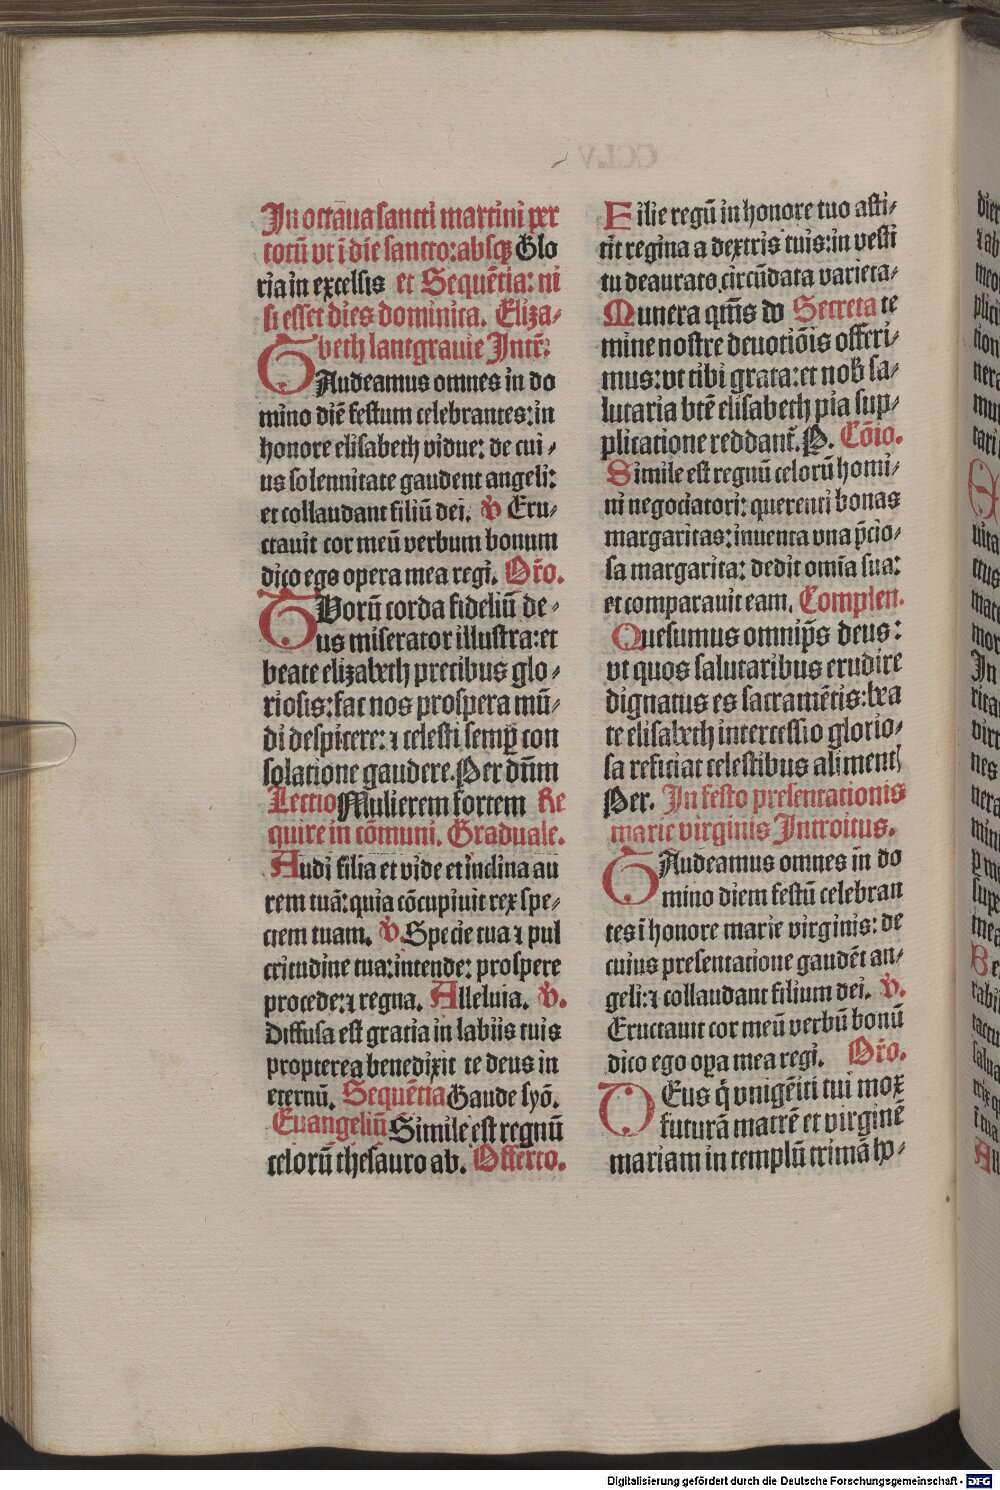 In octaua sancti martini per
totū vt ī die sancto: absqꝫ Glo
ria in excelsis et Sequētia: ni
si esset dies dominica. Eliza⸗
beth lantgrauie Intr̄:
GAudeamus omnes in do
mino diē festum celebrantes: in
honore elisabeth vidue: de cui⸗
us solennitate gaudent angeli:
et collaudant filiū dei. v̄ Eru⸗
ctauit cor meū verbum bonum
dico ego opera mea regi. Or̄o.
TUorū corda fideliū de⸗
us miserator illustra: et
beate elizabeth precibus glo⸗
riosis: fac nos prospera mū⸗
di despicere: ⁊ celesti semꝑ con
solatione gaudere. Per dn̄m
Lectio Mulierem fortem Re
quire in cōmuni. Graduale.
Audi filia et vide et inclina au
rem tuā: quia cōcupiuit rex spe⸗
ciem tuam. v̄. Specie tua ⁊ pul
critudine tua: intende: prospere
procede: ⁊ regna. Alleluia. v̄.
Diffusa est gratia in labiis tuis
propterea benedixit te deus in
eternū. Sequētia Gaude syō.
Euangeliū Simile est regnū
celorū thesauro ab. Offerto.
Filie regū in honore tuo asti⸗
tit regina a dextris tuis: in vesti
tu deaurato circūdata varieta⸗
Munera qm̄s do Secreta te
mine nostre deuotiōis offeri⸗
mus: vt tibi grata: et nob̄ sa⸗
lutaria btē elisabeth pia sup⸗
plicatione reddant̄. P. Cōio.
Simile est regnū celorū homi⸗
ni negociatori: querenti bonas
margaritas: inuenta vna p̄cio⸗
sa margarita: dedit omīa sua:
et comparauit eam. Complen.
Quesumus omnip̄s deus:
vt quos salutaribus erudire
dignatus es sacramētis: bea
te elisabeth intercessio glorio⸗
sa reficiat celestibus alimentꝭ
Per. In festo presentationis
marie virginis Introitus.
GAudeamus omnes in do
mino diem festū celebran
tes ī honore marie virginis: de
cuius presentatione gaudēt an⸗
geli: ⁊ collaudant filium dei. v̄.
Eructauit cor meū verbū bonū
dico ego oꝑa mea regi. Or̄o.
DEus q̄ vnigēiti tui mox
futurā matrē et virginē
mariam in templū trimā ho⸗
Digitalisierung gefördert durch die Deutsche Forschungsgemeinschaft - DFG